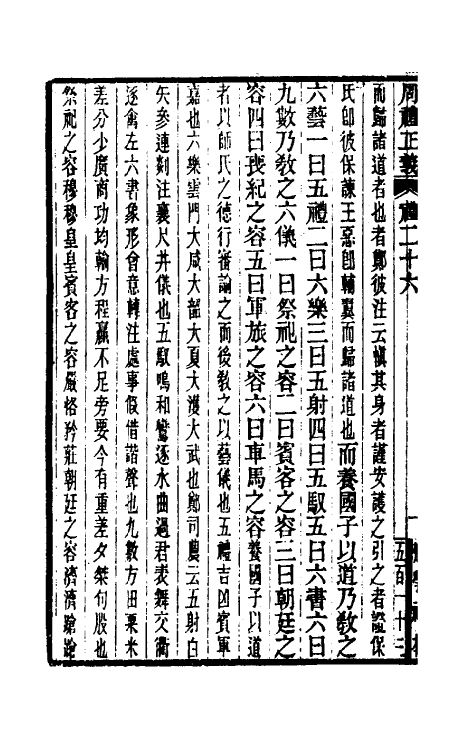 周禮正義 禮二十六
而歸諸道者也者鄭彼注云愼其身者謹安護之引之者證保
氏卽彼保諫王惡卽輔翼而歸諸道也而養國子以道乃敎之
六藝一曰五禮二曰六樂三曰五射四曰五馭五曰六書六曰
九數乃敎之六儀一曰祭祀之容二曰賓客之容三曰朝廷之
容四曰喪紀之容五曰軍旅之容六曰車馬之容養國子以道
者以師氏之德行審諭之而後敎之以藝儀也五禮吉凶賓軍
嘉也六樂雲門大咸大韶大夏大濩大武也鄭司農云五射白
矢參連剡注襄尺井儀也五馭鳴和鸞逐水曲過君表舞交衢
逐禽左六書象形會意轉注處事假借諧聲也九數方田粟米
差分少廣商功均輸方程贏不足旁要今有重差夕桀句股也
祭祀之容穆穆皇皇賓客之容嚴恪矜莊朝廷之容濟濟蹌蹌